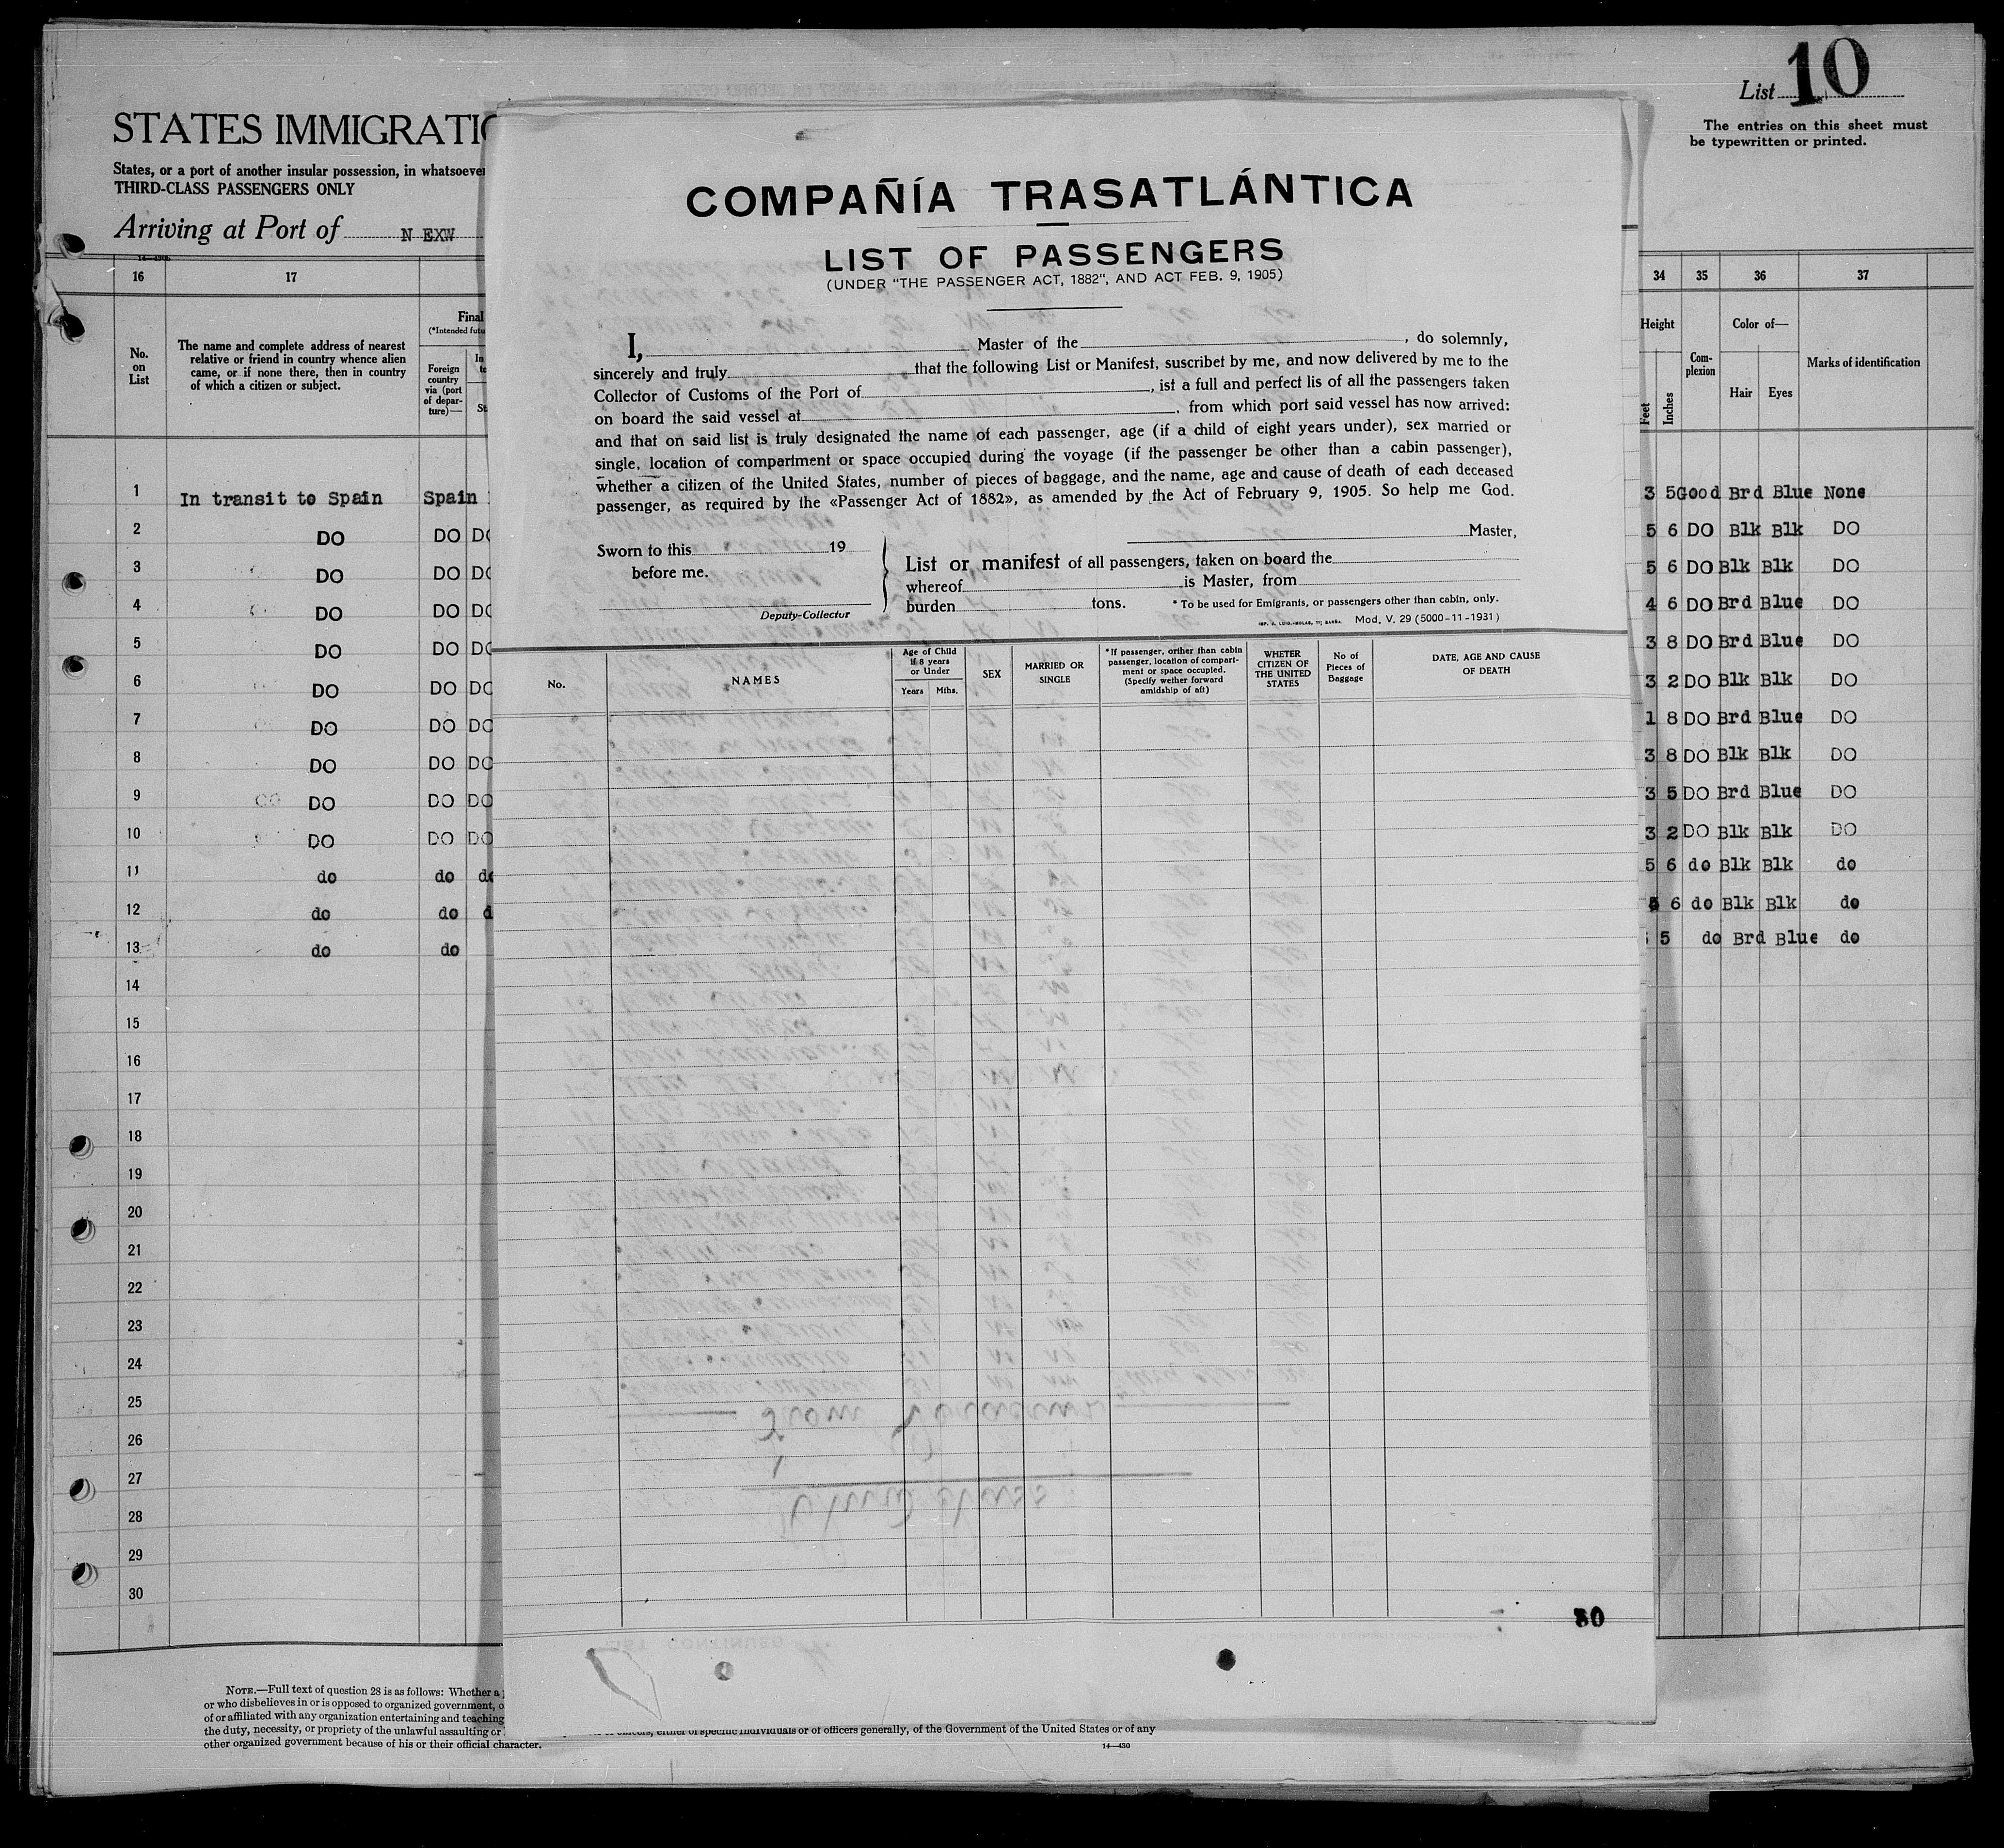 List 10
The entries on this sheet must
be typewritten or printed.
STATES IMMIGRATIO
States, or a port of another insular possession, in whatsoever
THIRD-CLASS PASSENGERS ONLY
Arriving at Port of N EXW
COMPAÑÍA TRASATLÁNTICA
LIST OF PASSENGERS
(UNDER "THE PASSENGER ACT, 1882", AND ACT FEB. 9, 1905)
I, Master of the , do solemnly,
sincerely and truly that the following List or Manifest, suscribet by me, and now delivered by me to the
Collector of Customs of the Port of , ist a full and perfect lis of all the passengers taken
on board the said vessel at , from which port said vessel has now arrived:
and that on said list is truly designated the name of each passenger, age (if a child of eight years under), sex married or
single, location of compartment or space occupied during the voyage (if the passenger be other than a cabin passenger),
whether a citizen of the United States, number of pieces of baggage, and the name, age and cause of death of each deceased
passenger, as required by the «Passenger Act of 1882», as amended by the Act of February 9, 1905. So help me God.
Master,
Sworn to this 19
before me.
Deputy-Collector
List or manifest of all passengers, taken on board the
whereof is Master, from
burden tons. * To be used for Emigrants, or passengers other than cabin, only.
Mod. V. 29 (5000-11-1931)
No.
NAMES
Age of Child
If 8 years
or Under
Years Mths.
SEX
MARRIED OR
SINGLE
* If passenger, oriher than cabin
passenger, location of compart-
ment or space occupied.
(Specify wether forward
amidship of aft)
WHETER
CITIZEN OF
THE UNITED
STATES
No of
Pieces of
Baggage
DATE, AGE AND CAUSE
OF DEATH
30
16 17
No.
on
List
The name and complete address of nearest
relative or friend in country whence alien
came, or if none there, then in country
of which a citizen or subject.
Final
(*Intended futu
Foreign
country
via (port
of depar-
ture)—
34 35 36 37
Height
Feet
Inches
Com-
plexion
Color of—
Hair Eyes
Marks of identification
1 In transit to Spain Spain 3 5 Good Brd Blue None
2 DO DO DO 5 6 DO Blk Blk DO
3 DO DO DO 5 6 DO Blk Blk DO
4 DO DO DO 4 6 DO Brd Blue DO
5 DO DO DO 3 8 DO Brd Blue DO
6 DO DO DO 3 2 DO Blk Blk DO
7 DO DO DO 1 8 DO Brd Blue DO
8 DO DO DO 3 8 DO Blk Blk DO
9 DO DO DO 3 5 DO Brd Blue DO
10 DO DO DO 3 2 DO Blk Blk DO
11 do do do 5 6 do Blk Blk do
12 do do d 6 do Blk Blk do
13 do do 5 do Brd Blue do
14
15
16
17
18
19
20
21
22
23
24
25
26
27
28
29
30
NOTE.—Full text of question 28 is as follows: Whether a
or who disbelieves in or is opposed to organized government, o
of or affiliated with any organization entertaining and teaching
the duty, necessity, or propriety of the unlawful assaulting or officers, either of specific individuals or of officers generally, of the Government of the United States or of any
other organized government because of his or their official character.
14—430